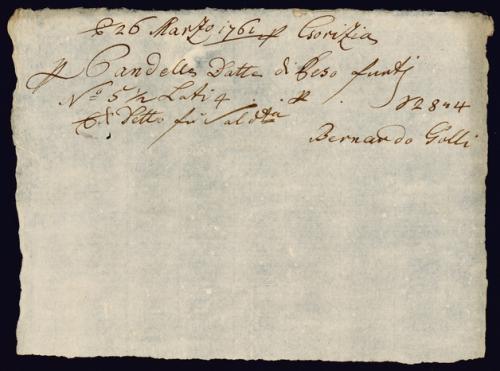 26 Marzo 1761 Gorizia
Candelle Datte di Peso funti
No 5 1/2 Lati 4
Detto fu Saldta
Bernardo Golli